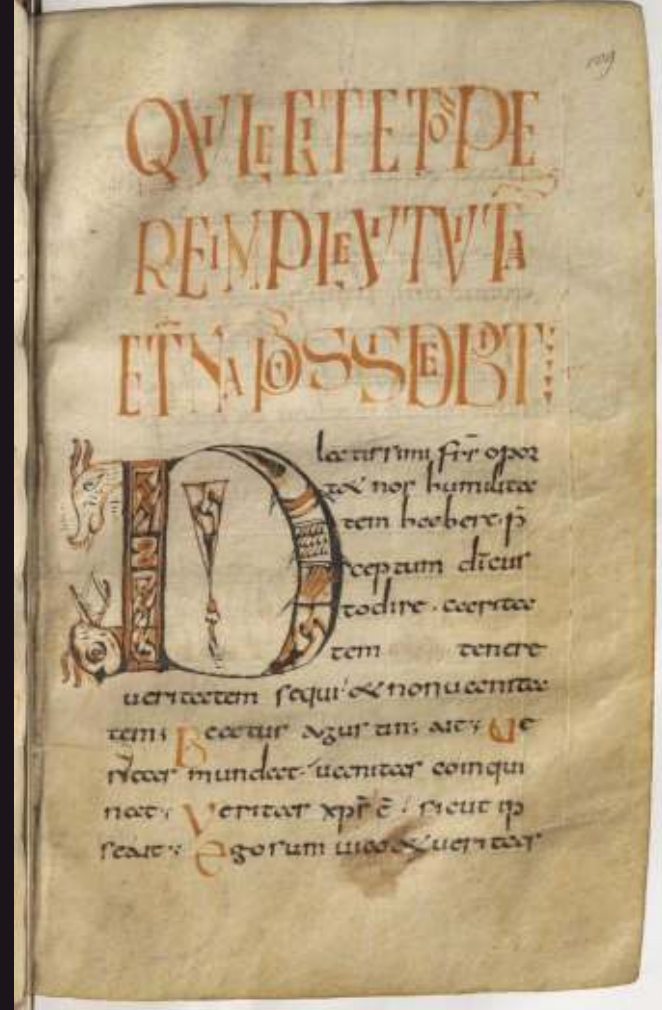 109
QVI LEGIT ET OPE
RE IMPLEVIT VITA
ET̄NA POSSIDEBIT
DIlectissimi fr̄s opor
t& nos humilita
tem habere. p̄
ceptum dī cus
todire. carita
tem tenere
ueritatem sequi & non uanita
tem; Beatus agustin; ait; Ue
ritas mundat. uanitas coinqui
nat; Veritas xp̄s ē. sicut ip
se ait; Ego sum uita & ueritas